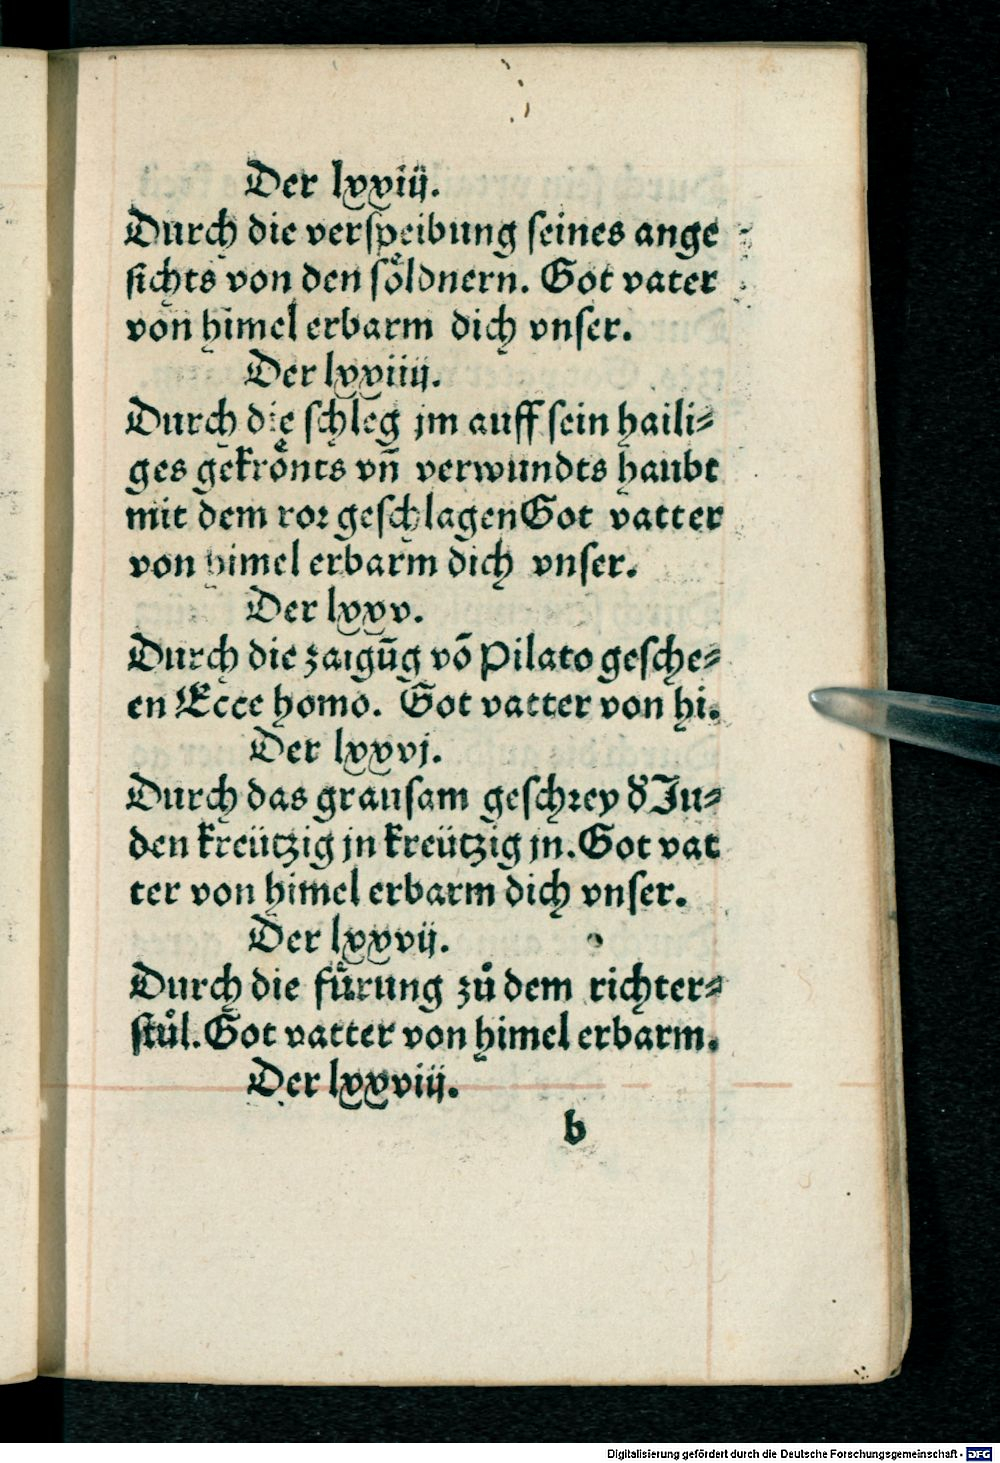 Der lxxiij.
Durch die verspeibung seines ange
sichts von den soͤldnern. Got vater
von himel erbarm dich vnser.
Der lxxiiij.
Durch die schleg jm auff sein haili⸗
ges gekroͤnts vn̄ verwundts haubt
mit dem ror geschlagen Got vatter
von himel erbarm dich vnser.
Der lxxv.
Durch die zaigūg vō Pilato gesche⸗
en Ecce homo. Got vatter von hi.
Der lxxvj.
Durch das grausam geschrey d' Ju⸗
den kreützig jn kreützig jn. Got vat
ter von himel erbarm dich vnser.
Der lxxvij.
Durch die fuͤrung zuͦ dem richter⸗
stuͦl. Got vatter von himel erbarm.
Der lxxviij.
b
Digitalisierung gefördert durch die Deutsche Forschungsgemeinschaft - DFG